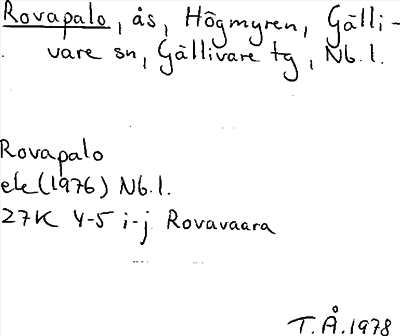 Rovapalo, ås, Högmyren, Gälli-
vare sn, Gällivare tg, Nb.l.
Rovapalo
ek(1976) Nb.l.
27K 4-5 i-j Rovavaara
T.Å.1978